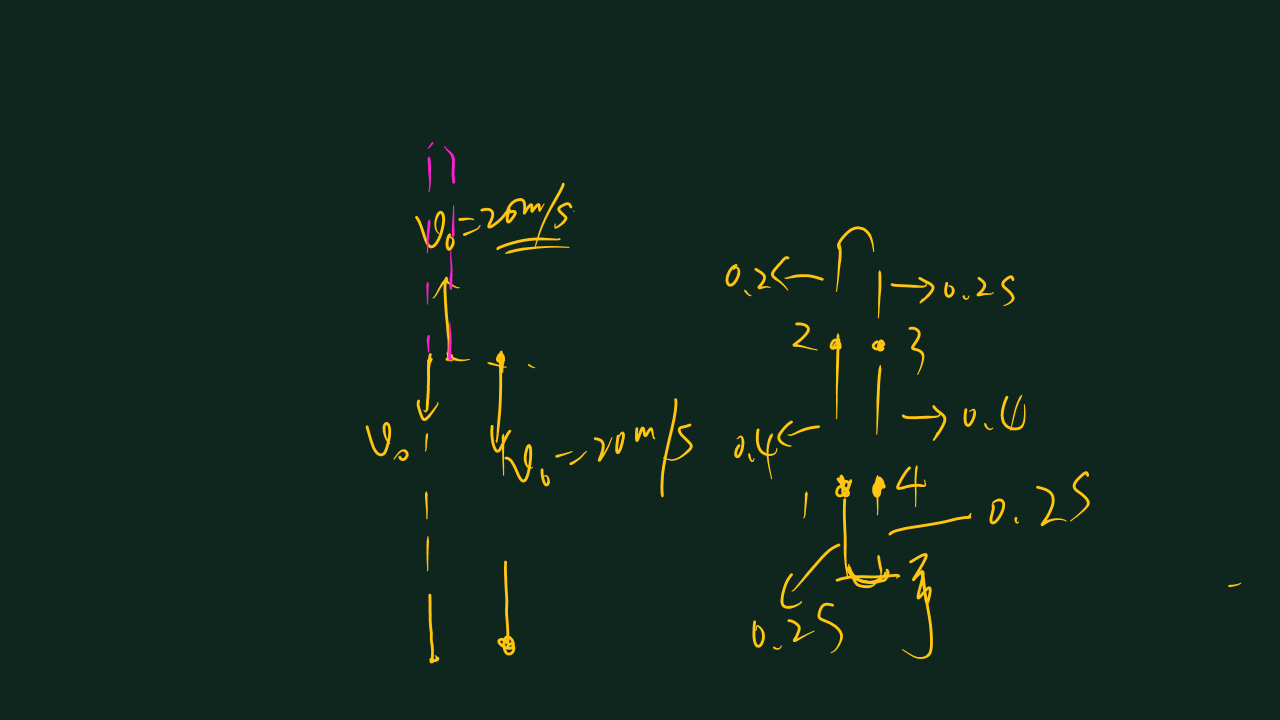 V₀=20m/s
V₀
V₀=20m/s
0.2
0.2S
2
3
0.4
0.4
1
4
0.2S
0.2S
手